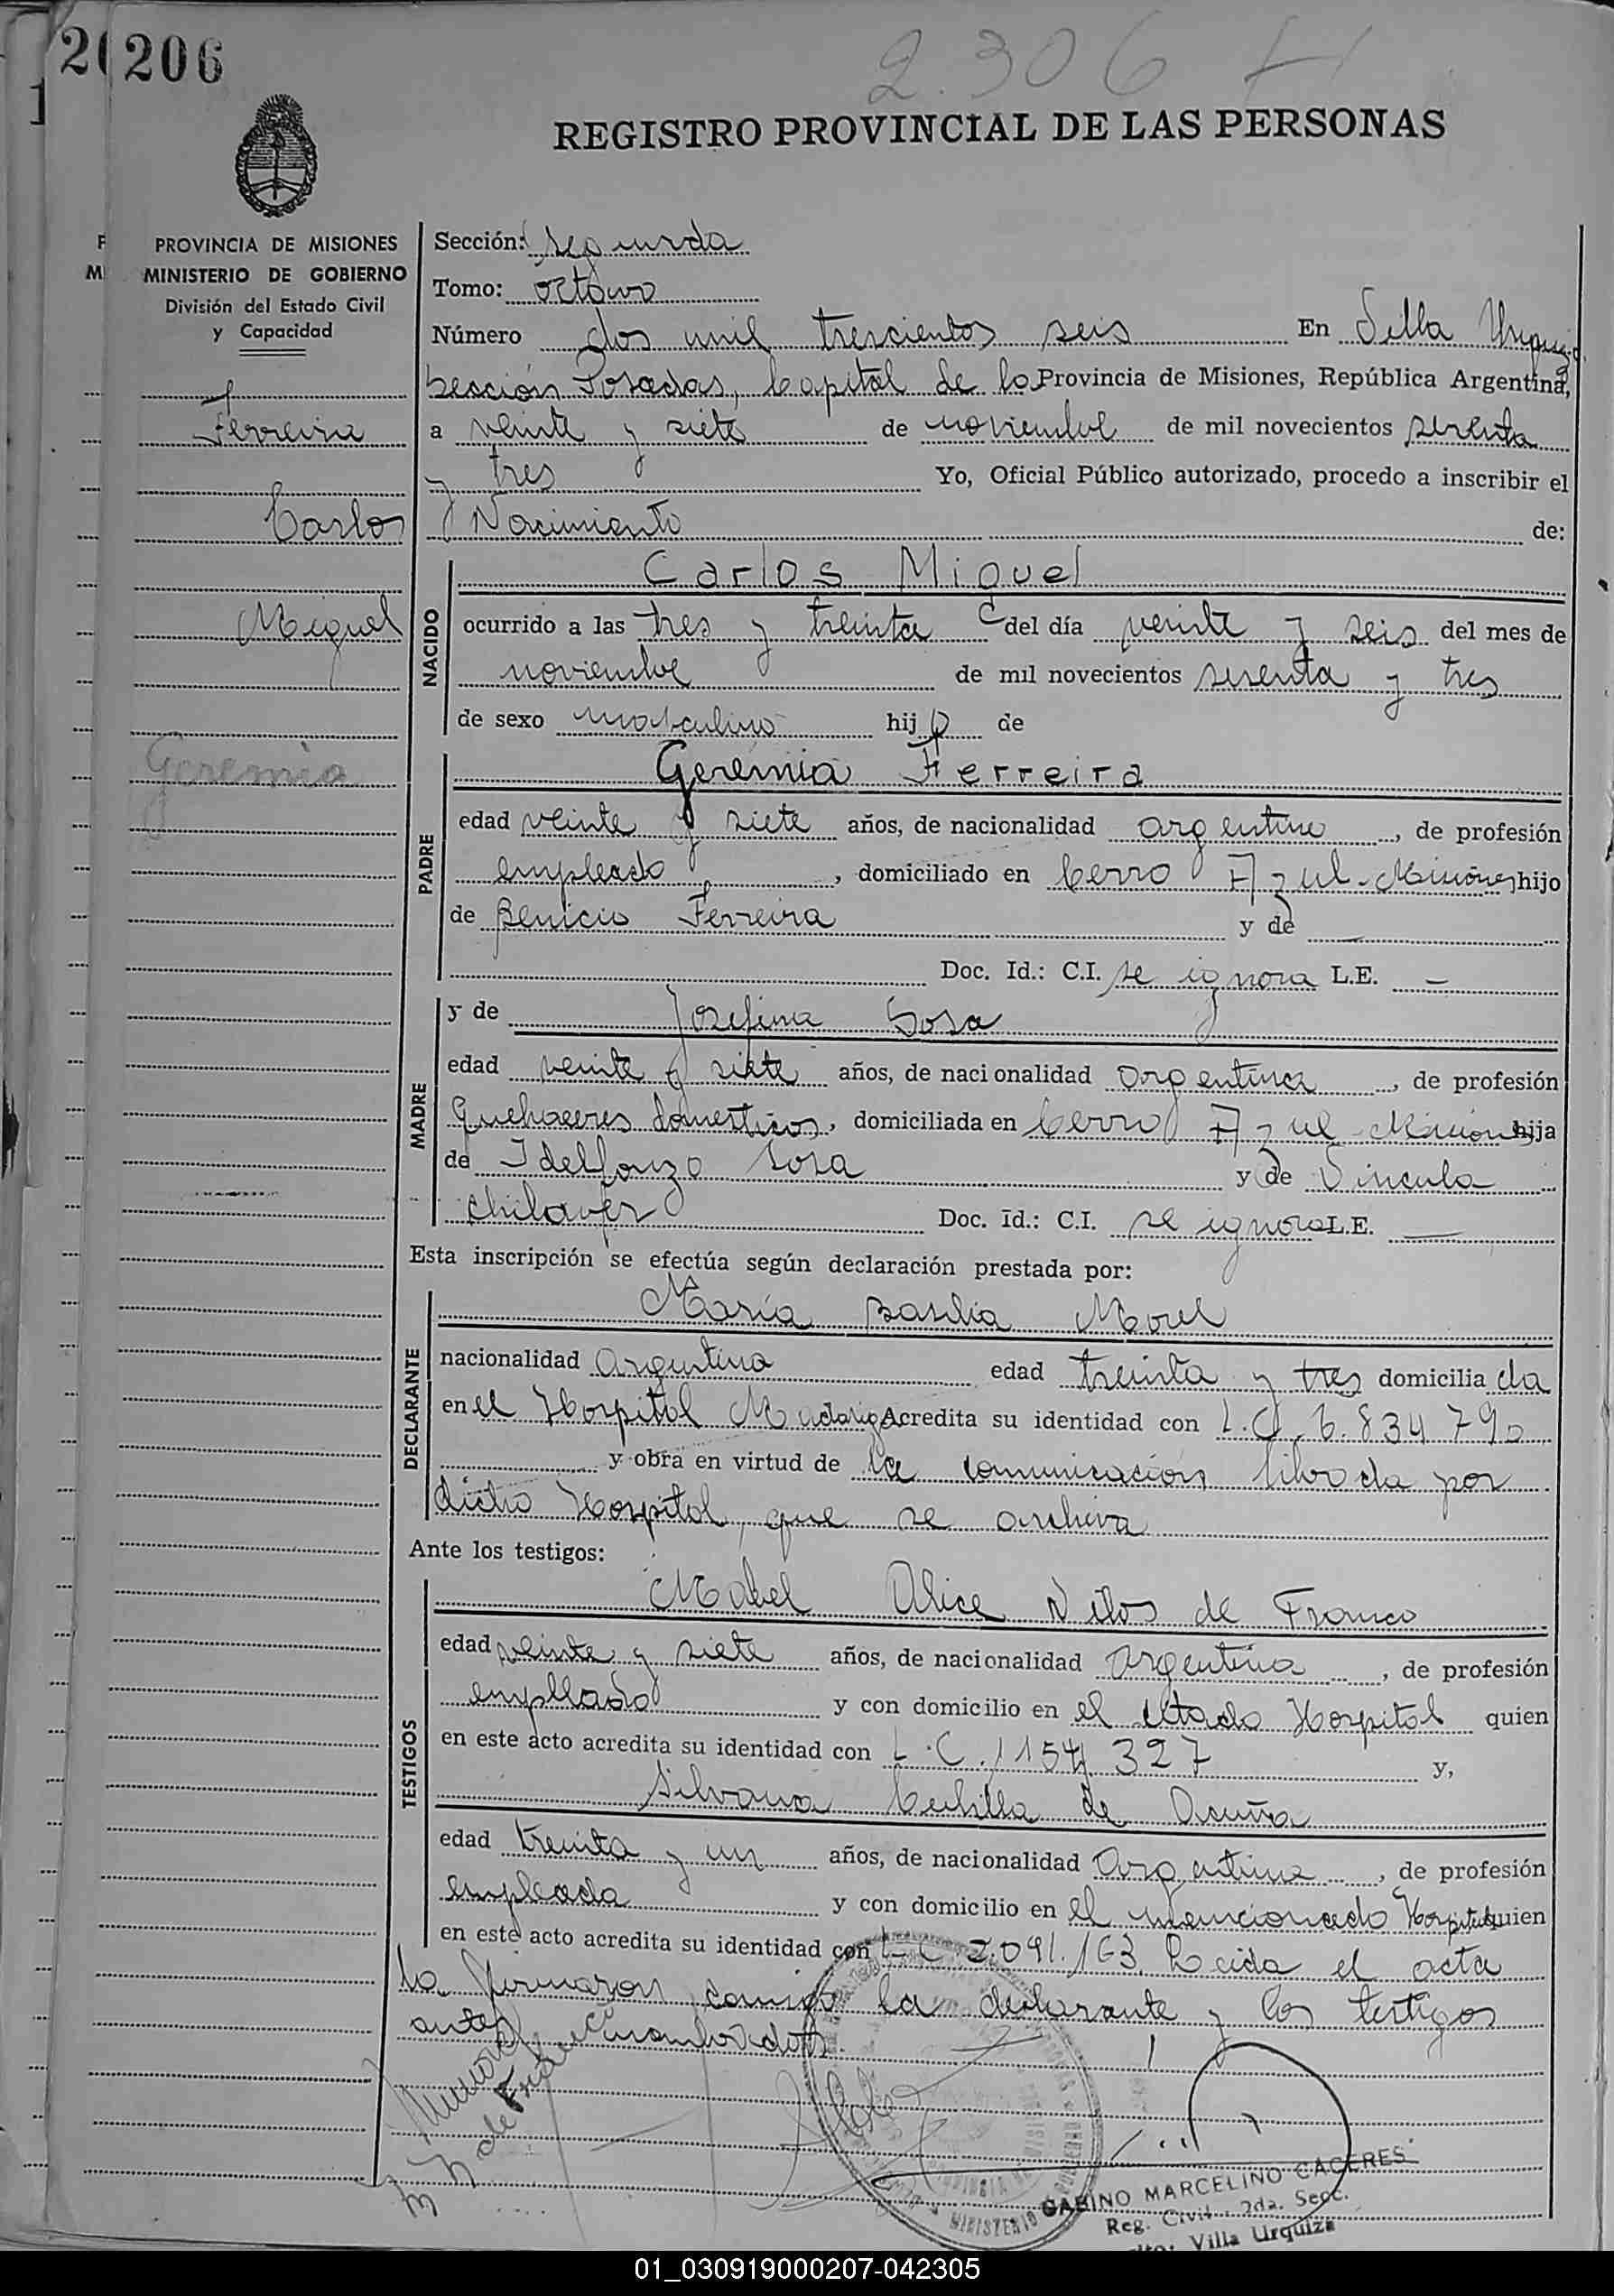 206
2.306
REGISTRO PROVINCIAL DE LAS PERSONAS
PROVINCIA DE MISIONES
MINISTERIO DE GOBIERNO
División del Estado Civil
y Capacidad
Ferreira
Carlos
Miguel
Geremia
Sección: Segunda
Tomo: octavo
Número dos mil trescientos seis En Villa Urquiza
Sección Posadas, Capital de la Provincia de Misiones, República Argentina,
a veinte y siete de noviembre de mil novecientos setenta
y tres Yo, Oficial Público autorizado, procedo a inscribir el
Nacimiento de:
NACIDO
Carlos Miguel
ocurrido a las tres y treinta del día veinte y seis del mes de
noviembre de mil novecientos setenta y tres
de sexo masculino hijo de
PADRE
Geremia Ferreira
edad veinte y siete años, de nacionalidad argentino, de profesión
empleado, domiciliado en Cerro Azul - Misiones hijo
de Benicio Ferreira y de —
Doc. Id.: C.I. se ignora L.E. —
MADRE
y de Josefina Sosa
edad veinte y siete años, de nacionalidad argentina, de profesión
Quehaceres domesticos, domiciliada en Cerro Azul - Misiones hija
de Idelfonzo Sosa y de Vincula
Chilaver Doc. Id.: C.I. se ignora L.E. —
Esta inscripción se efectúa según declaración prestada por:
DECLARANTE
María Basilia Morel
nacionalidad Argentina edad treinta y tres domiciliada
en el Hospital Madariaga Acredita su identidad con L.C. 6.834 790
y obra en virtud de la comunicación librada por
dicho Hospital, que se archiva
Ante los testigos:
TESTIGOS
Mabel Alice de Franco
edad veinte y siete años, de nacionalidad Argentina, de profesión
empleado y con domicilio en el citado Hospital quien
en este acto acredita su identidad con L.C. 327 y,
Silvana de Acuña
edad treinta y un años, de nacionalidad Argentina, de profesión
empleada y con domicilio en el mencionado Hospital quien
en este acto acredita su identidad con L.C. 2.091.163. Leida el acta
la firmaron conmigo la declarante y los testigos
antes nombrados.
de Franco
MINISTERIO
GABINO MARCELINO CACERES
Reg. Civil 2da. Secc.
Villa Urquiza
01_030919000207-042305